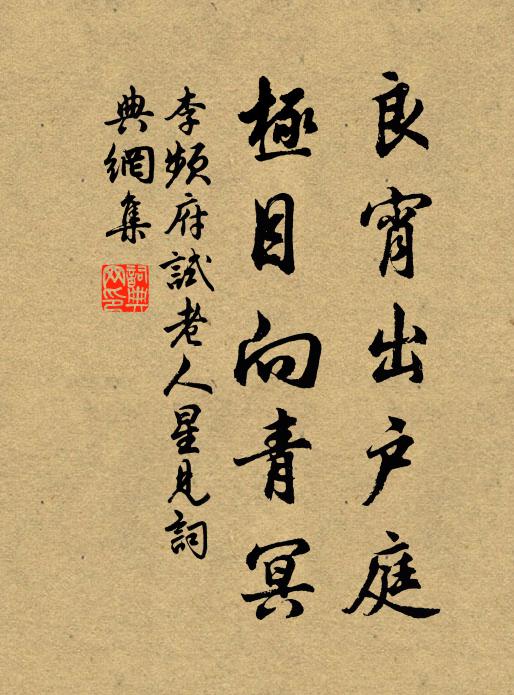 良宵出户庭
極目向青冥
李頻府試老人星見詞
典網集
詞典網印